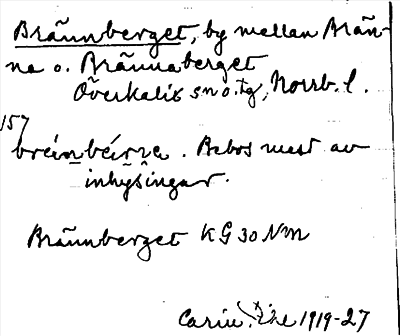 Brännberget, by mellan Brän-
na o. Brännaberget
Överkalix sn o. tg, Norrb. l.
157
Bebos mest av
inhysingar.
Brännberget KG 30 NM
Carin 1919-27